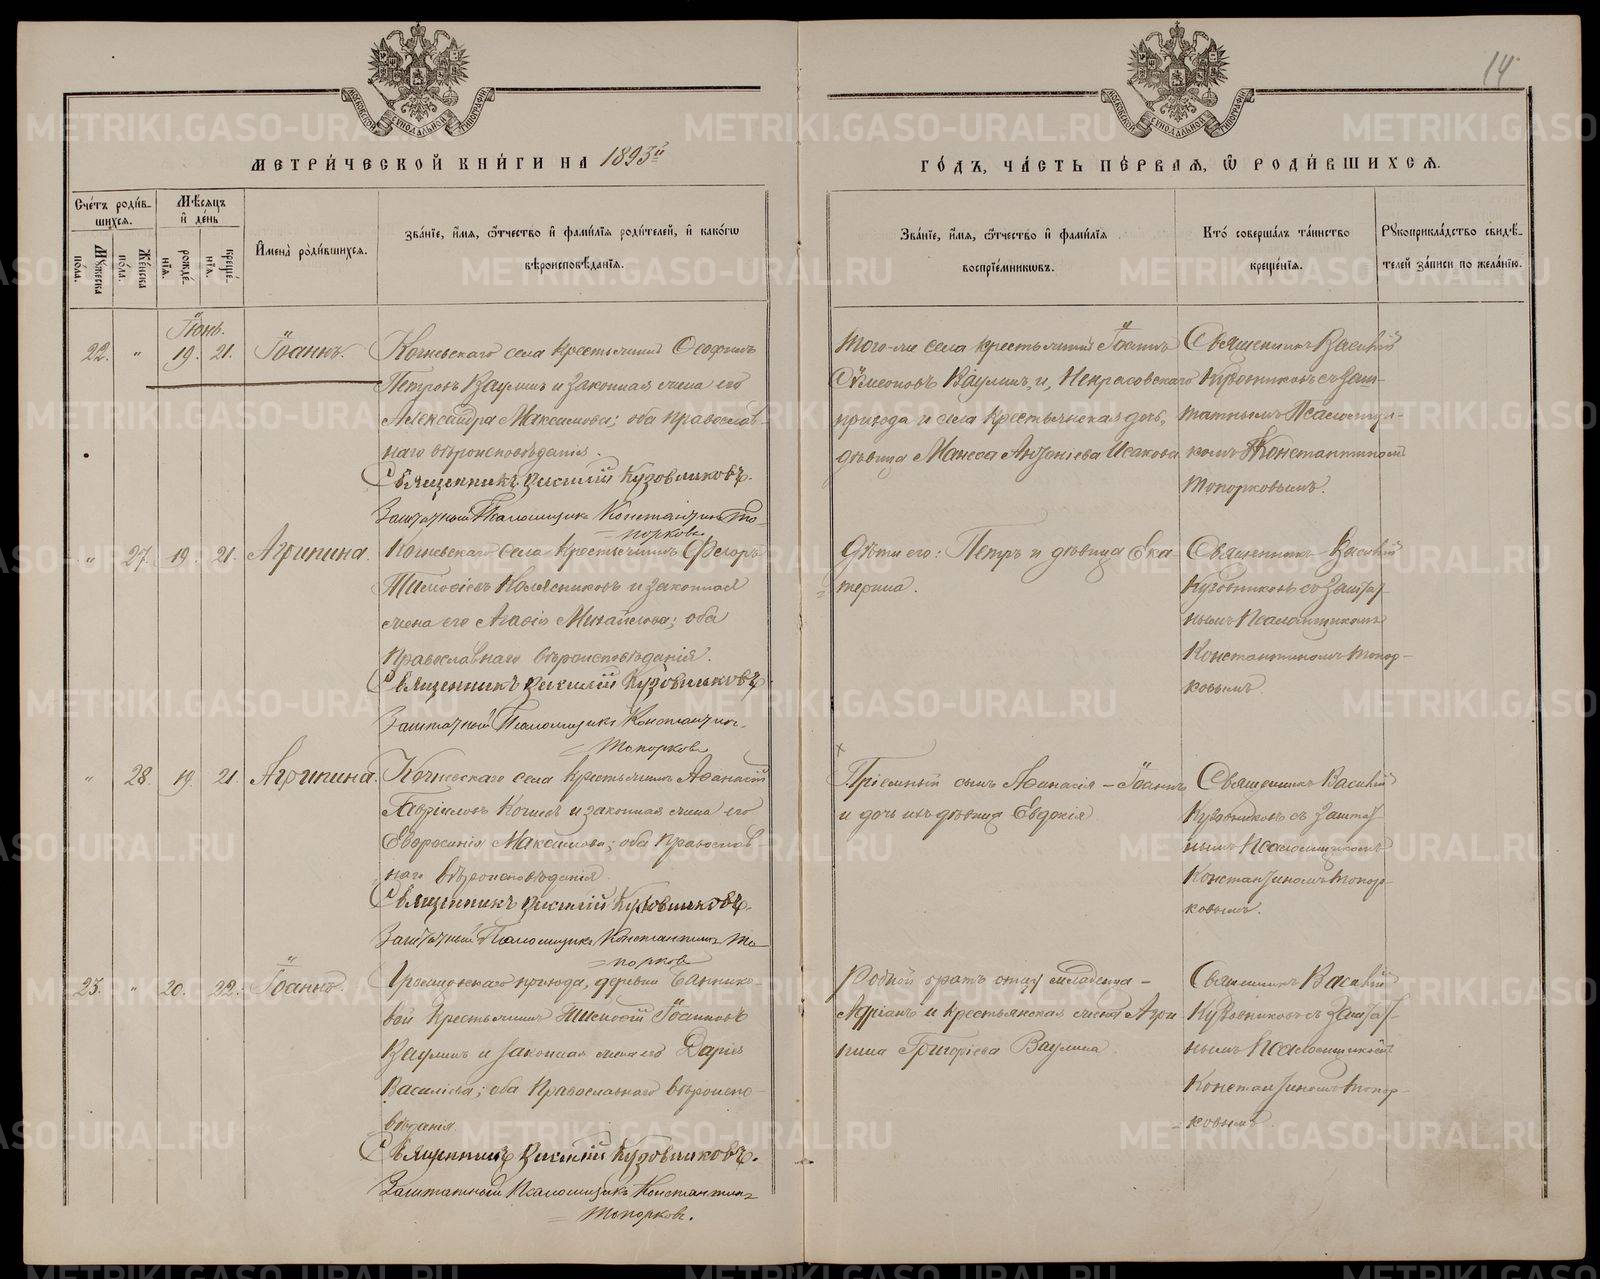 МОСКОВСКОЙ СѴНОДАЛЬНОЙ ТИПОГРАФІИ
МЕТРИ́ЧЕСКОЙ КНИ́ГИ НА 1893й
Сче́тъ роди́в-
шихся.
Мѣ́сяцъ
и҆ де́нь
Мꙋ́жеска
по́ла.
Же́нска
по́ла.
рожде́-
нїя.
креще́-
нїя.
И҆мена̀ роди́вшихся.
Зва́нїе, и҆́мя, ѻ҆́тчество и҆ фамн́лїя роди́телей, и҆ како́гѡ
вѣроисповѣ́данїя.
Іюнь.
22. " 19. 21. Іоаннъ.
Кочневскаго села крестьянинъ Ѳеофилъ
Петровъ Ваулинъ и законная жена его
Александра Максимова; оба Православ-
наго вѣроисповѣданія.
Священникъ Василій Кузовниковъ.
Заштатный Псаломщикъ Константинъ То-
порковъ
" 27. 19. 21. Агрипина.
Кочневскаго села крестьянинъ Ѳедоръ
Тимоѳеевъ Колясниковъ и законная
жена его Агаѳія Михайлова; оба
Православнаго вѣроисповѣданія.
Священникъ Василій Кузовниковъ
Заштатный Псаломщикъ Константинъ
Топорковъ
" 28. 19. 21. Агрипина.
Кочневскаго села крестьянинъ Аѳанасій
Гавріиловъ Кочневъ и законная жена его
Евфросинія Максимова; оба Православ-
наго вѣроисповѣданія.
Священникъ Василій Кузовниковъ.
Заштатный Псаломщикъ Константинъ То-
порковъ
23. " 20. 22. Іоаннъ.
прихода, деревни Банніко-
вой крестьянинъ Тимоѳей Іоанновъ
Ваулинъ и законная жена его Дарія
Василіева; оба Православнаго вѣроиспо-
вѣданія
Священникъ Василій Кузовниковъ.
Заштатный Псаломщикъ Константинъ
Топорковъ.
14
МОСКОВСКОЙ СѴНОДАЛЬНОЙ ТИПОГРАФІИ
ГО́ДЪ, ЧА́СТЬ ПЕ́РВАЯ, Ѽ РОДИ́ВШИХСЯ.
Зва́нїе, и҆́мя, ѻ҆́тчество и҆ фами́лїя
воспрїе́мникѡвъ.
Кто̀ соверша́лъ та́инство
креще́нїя.
Рꙋкоприкла́дство свидѣ́-
телей за́писи по жела́нїю.
Того-же села крестьянинъ Іоаннъ
Сѷмеоновъ Ваулинъ, и, Некрасовскаго
прихода и села крестьянская дочь,
дѣвица Антоніева Исакова
Священникъ Василій
Кузовниковъ съ Заш-
татнымъ Псаломщи-
комъ Константиномъ
Топорковымъ.
Дѣти его: Петръ и дѣвица Ека
терина.
Священникъ Василій
Кузовниковъ съ Заштат-
нымъ Псаломщикомъ
Константиномъ Топор-
ковымъ.
Пріемный сынъ Аѳанасія – Іоаннъ
и дочь ихъ дѣвица Евдокія
Священникъ Василій
Кузовниковъ съ Заштат
нымъ Псаломщикомъ
Константиномъ Топор-
ковымъ.
Родной братъ отцу младенца –
Адріанъ и крестьянская жена Агри
пина Григоріева Ваулина.
Священникъ Василій
Кузовниковъ съ Заштат-
нымъ Псаломщикомъ
Константиномъ Топор-
ковымъ.
METRIKI.GASO-URAL.RU